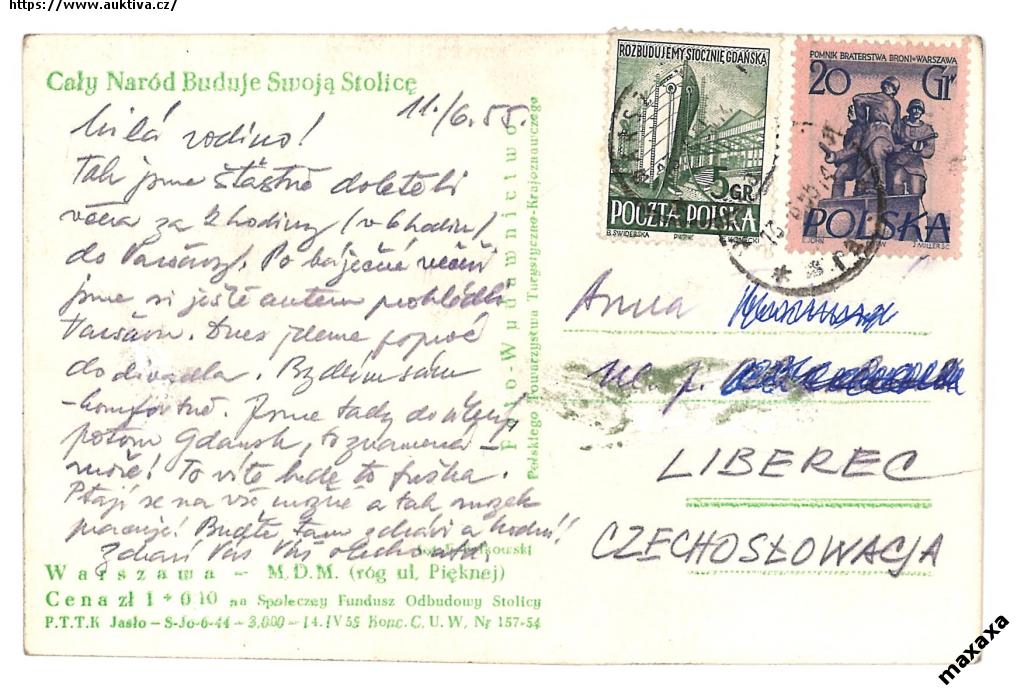 https://www.auktiva.cz/
Cały Naród Buduje Swoją Stolicę
11./6.55.
Milá rodino!
Tak jsme šťastně doletěli
včera za 2 hodiny (v 6 hodin)
do Varšavy. Po báječné večeři
jsme si ještě autem prohlédli
Varšavu. Dnes jdeme poprvé
do divadla. Bydlím sám
komfortně. Jsme tady do
potom Gdaňsk, to znamená
moře! To víte bude to fuška.
Ptají se na vše možné a tak mozek
pracuje! Buďte tam zdrávi a hodní!!
Zdraví Vás Váš
Warszawa – M.D.M. (róg ul. Pięknej)
Cena zł 1 + 0 10 na Społeczny Fundusz Odbudowy Stolicy
P.T.T.K Jasło – S-Jo-6-44 – 3,000 – 14. IV 55 Konc. C. U. W. Nr 157-54
Foto-Wydawnictwo
Polskiego Towarzystwa Turystyczno-Krajoznawczego
ROZBUDUJEMY STOCZNIĘ GDAŃSKĄ
5 GR
POCZTA POLSKA
B. ŚWIDERSKA
POMNIK BRATERSTWA BRONI•WARSZAWA
20 Gr
POLSKA
E. JOHN
J. MILLER SC.
Anna
LIBEREC
CZECHOSŁOWACJA
maxaxa